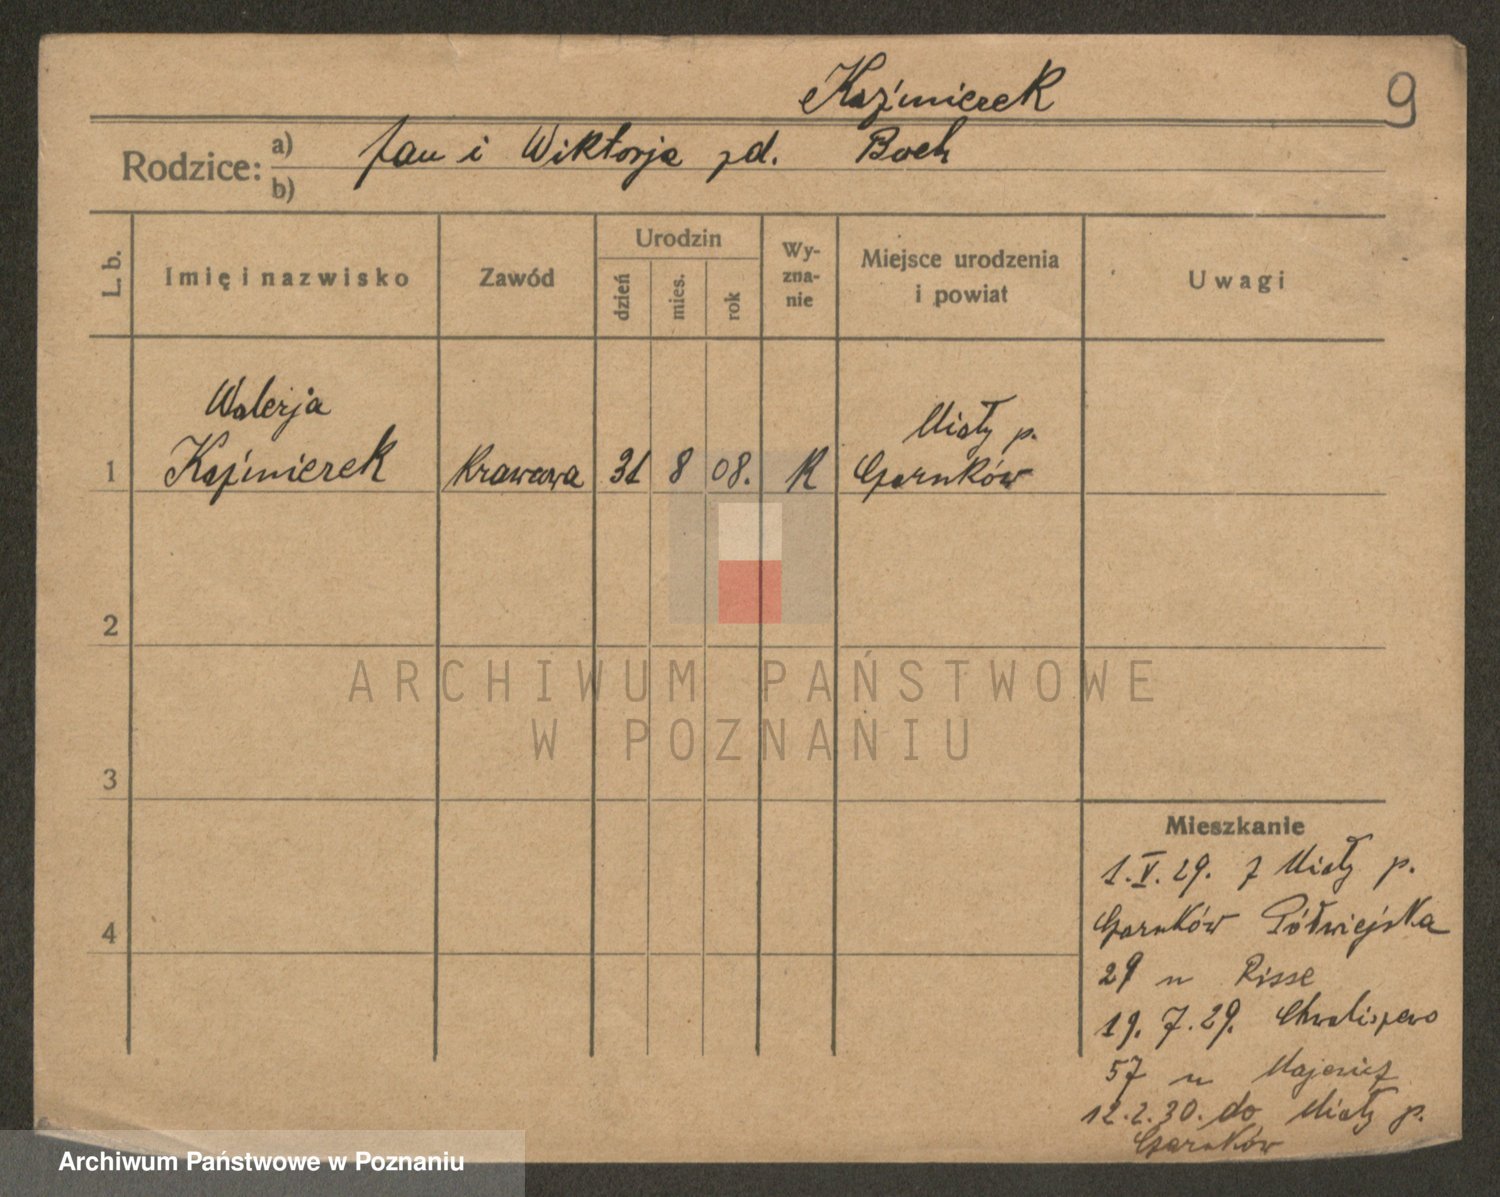 Kaźmierek
9
Rodzice: a) Jan i Wiktorja zd. Boch
b)
L. b.
Imię i nazwisko
Zawód
Urodzin
dzień
mies.
rok
Wy-
zna-
nie
Miejsce urodzenia
i powiat
Uwagi
Walerja
1 Kaźmierek Krawcowa 31 8 08. R
Miały p.
Czarnków
2
3
4
ARCHIWUM PAŃSTWOWE
W POZNANIU
Mieszkanie
1.V.29. z Miały p.
Czarnków Półwiejska
29 u Risse
19.7.29. Chwaliszewo
57 u
12.2.30. do Miały p.
Czarnków
Archiwum Państwowe w Poznaniu